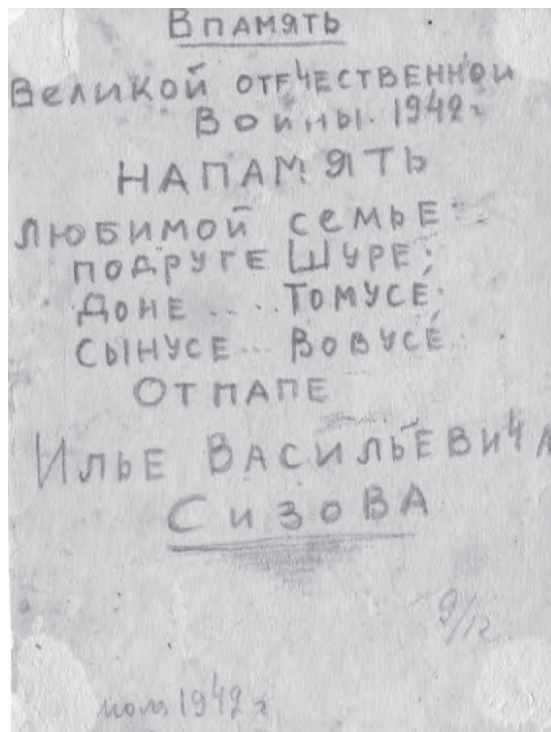 В ПАМЯТЬ
ВЕЛИКОЙ ОТЕЧЕСТВЕННОЙ
ВОЙНЫ. 1942 г
НАПАМЯТЬ
ЛЮБИМОЙ СЕМЬЕ:
ПОДРУГЕ ШУРЕ;
ДОНЕ .... ТОМУСЕ;
СЫНУСЕ... ВОВУСЕ.
ОТ ПАПЕ
ИЛЬЕ ВАСИЛЬЕВИЧА
СИЗОВА
9/12
1942 г